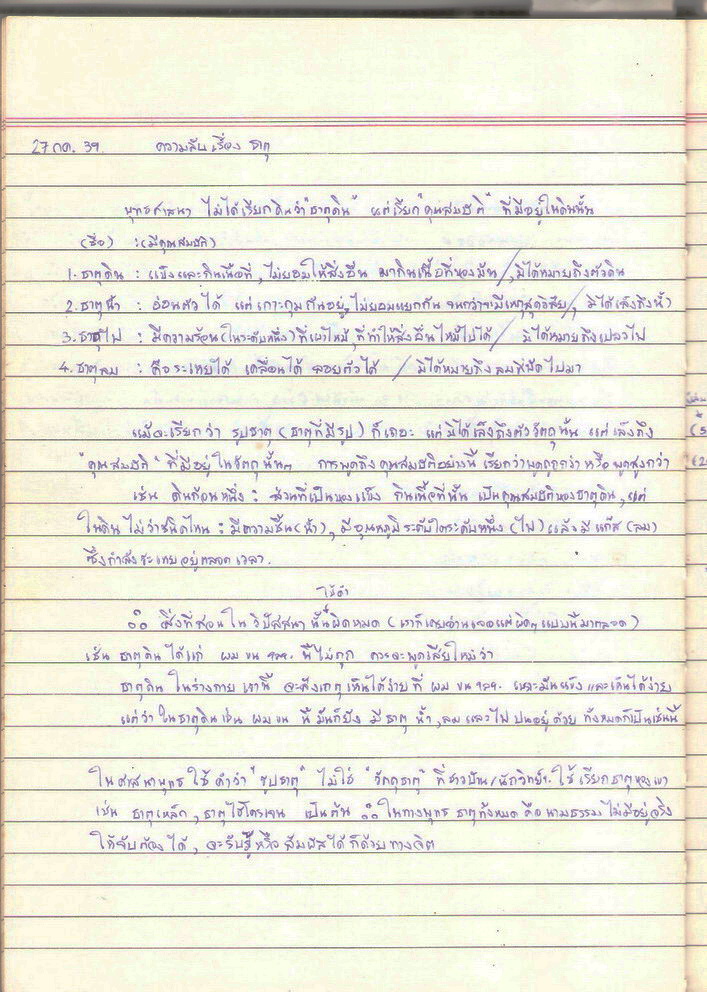 27 กค. 39. ความลับ เรื่อง ธาตุ
พุทธศาสนา ไม่ได้เรียกดินว่า "ธาตุดิน" แต่เรียก "คุณสมบัติ" ที่มีอยู่ในดินนั้น
(ชื่อ) : (มีคุณสมบัติ)
1. ธาตุดิน : แข็งและกินเนื้อที่, ไม่ยอมให้สิ่งอื่น มากินเนื้อที่ของมัน /, มิได้หมายถึงตัวดิน
2. ธาตุน้ำ : อ่อนตัวได้ แต่เกาะกุมกันอยู่, ไม่ยอมแยกกัน จนกว่าจะมีเหตุสุดวิสัย /, มิได้เล็งถึงน้ำ
3. ธาตุไฟ : มีความร้อน (ในระดับหนึ่ง) ที่เผาไหม้, ที่ทำให้สิ่งอื่นไหม้ไปได้ / มิได้หมายถึงเปลวไฟ
4. ธาตุลม : คือระเหยได้ เคลื่อนได้ ลอยตัวได้ / มิได้หมายถึงลมที่พัดไปมา
แม้จะเรียกว่า รูปธาตุ (ธาตุที่มีรูป) ก็เถอะ แต่มิได้เล็งถึงตัววัตถุนั้น แต่เล็งถึง
"คุณสมบัติ" ที่มีอยู่ในวัตถุนั้นๆ การพูดถึงคุณสมบัติอย่างนี้ เรียกว่าพูดถูกกว่า หรือ พูดสูงกว่า
เช่น ดินก้อนหนึ่ง : ส่วนที่เป็นของแข็ง กินเนื้อที่นั้น เป็นคุณสมบัติของธาตุดิน, แต่
ในดิน ไม่ว่าชนิดไหน : มีความชื้น (น้ำ), มีอุณหภูมิระดับใดระดับหนึ่ง (ไฟ) แล้วมีแก๊ส (ลม)
ซึ่งกำลังระเหยอยู่ตลอดเวลา.
ใช้คำ
∴ สิ่งที่สอนใน วิปัสสนา นั้นผิดหมด (เราก็เคยอ่านเจอแต่ผิดๆ แบบนี้มาตลอด)
เช่น ธาตุดินได้แก่ ผม ขน ฯลฯ. นี้ไม่ถูก ควรจะพูดเสียใหม่ว่า
ธาตุดิน ในร่างกายเรานี้ จะสังเกตุเห็นได้ง่ายที่ ผม ขน ฯลฯ. เพราะมันแข็ง และเห็นได้ง่าย
แต่ว่า ในธาตุดินเช่น ผม ขน นี้ มันก็ยัง มีธาตุ น้ำ, ลม และไฟ ปนอยู่ด้วย ทั้งหมดก็เป็นเช่นนี้
ในศาสนาพุทธ ใช้คำว่า "รูปธาตุ" ไม่ใช่ "วัตถุธาตุ" ที่ชาวบ้าน/นักวิทย์ฯ. ใช้เรียกธาตุของเขา
เช่น ธาตุเหล็ก, ธาตุไฮโดรเจน เป็นต้น ∴ ในทางพุทธ ธาตุทั้งหมด คือ นามธรรม ไม่มีอยู่จริง
ให้จับต้องได้, จะรับรู้หรือสัมผัสได้ก็ด้วยทางจิต